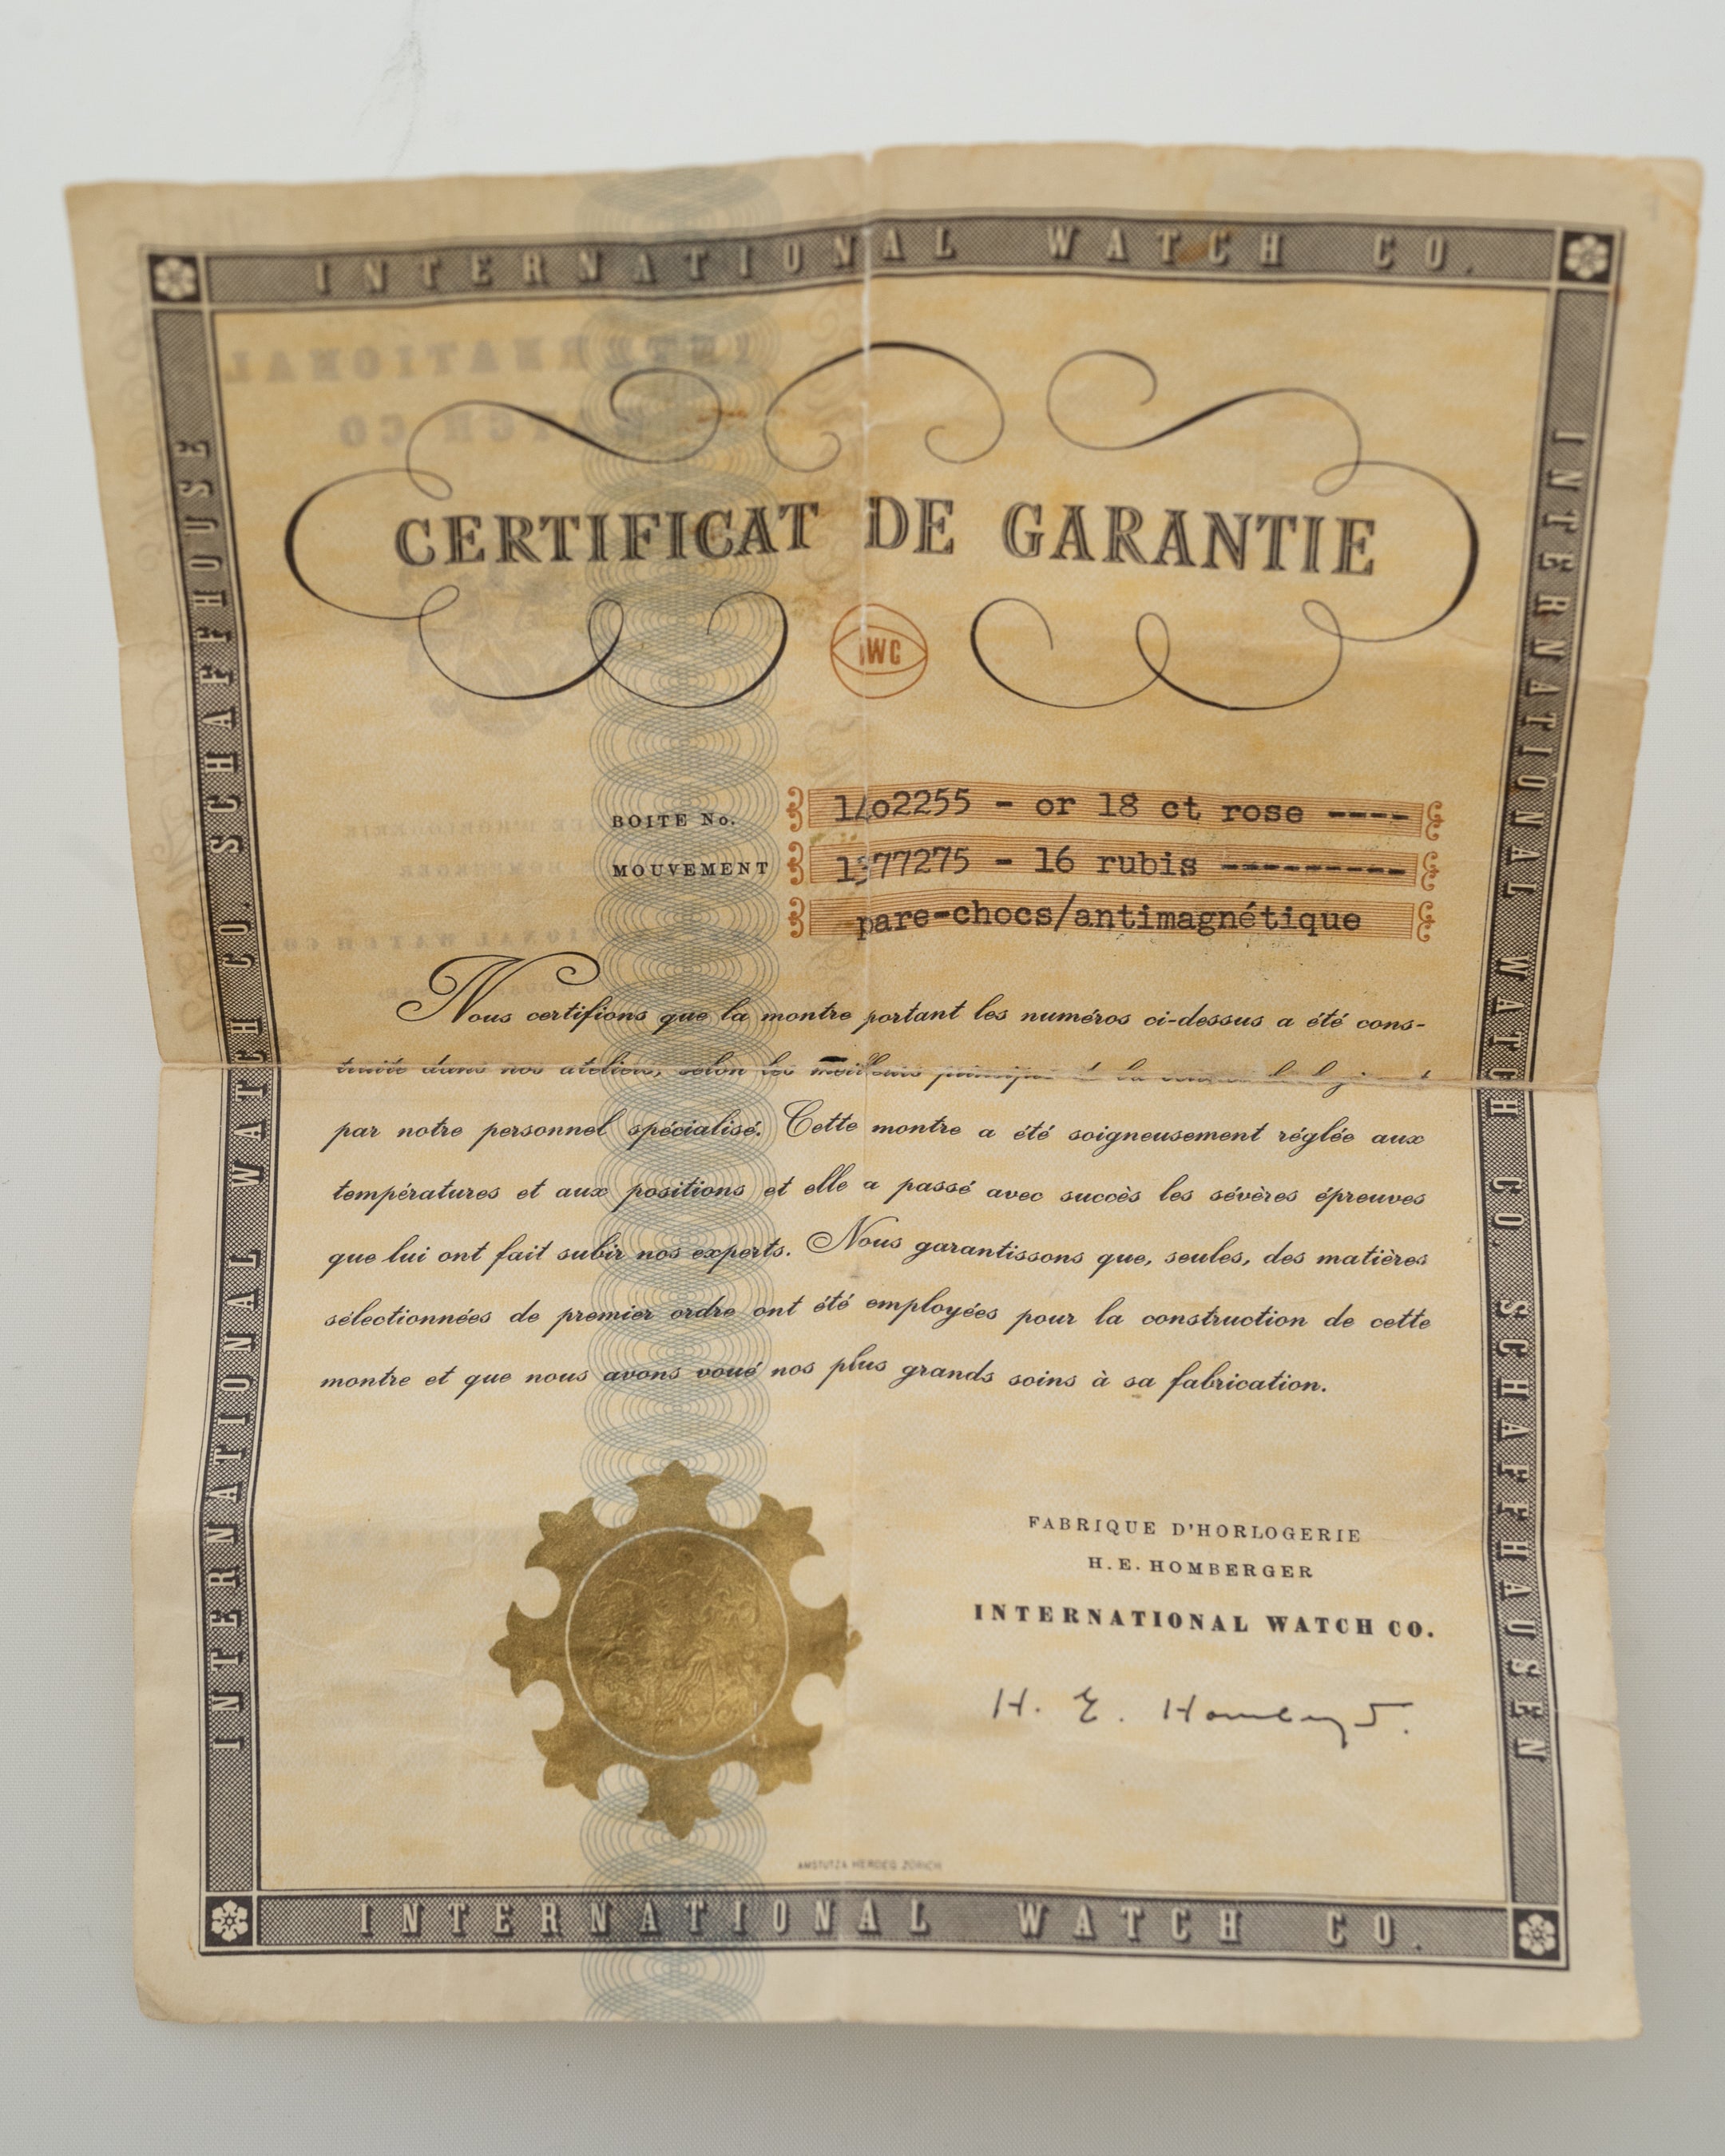 INTERNATIONAL WATCH CO.
INTERNATIONAL WATCH CO. SCHAFFHOUSE
INTERNATIONAL WATCH CO. SCHAFFHAUSEN
CERTIFICAT DE GARANTIE
IWC
BOITE No. 1402255 - or 18 ct rose ----
MOUVEMENT 1577275 - 16 rubis ---------
pare-chocs/antimagnétique
Nous certifions que la montre portant les numéros ci-dessus a été cons-
truite dans nos ateliers, selon les meilleurs
par notre personnel spécialisé. Cette montre a été soigneusement réglée aux
températures et aux positions et elle a passé avec succès les sévères épreuves
que lui ont fait subir nos experts. Nous garantissons que, seules, des matières
sélectionnées de premier ordre ont été employées pour la construction de cette
montre et que nous avons voué nos plus grands soins à sa fabrication.
FABRIQUE D'HORLOGERIE
H.E. HOMBERGER
INTERNATIONAL WATCH CO.
H. E. Homberger.
AMSTUTZ & HERDEG ZÜRICH
INTERNATIONAL WATCH CO.